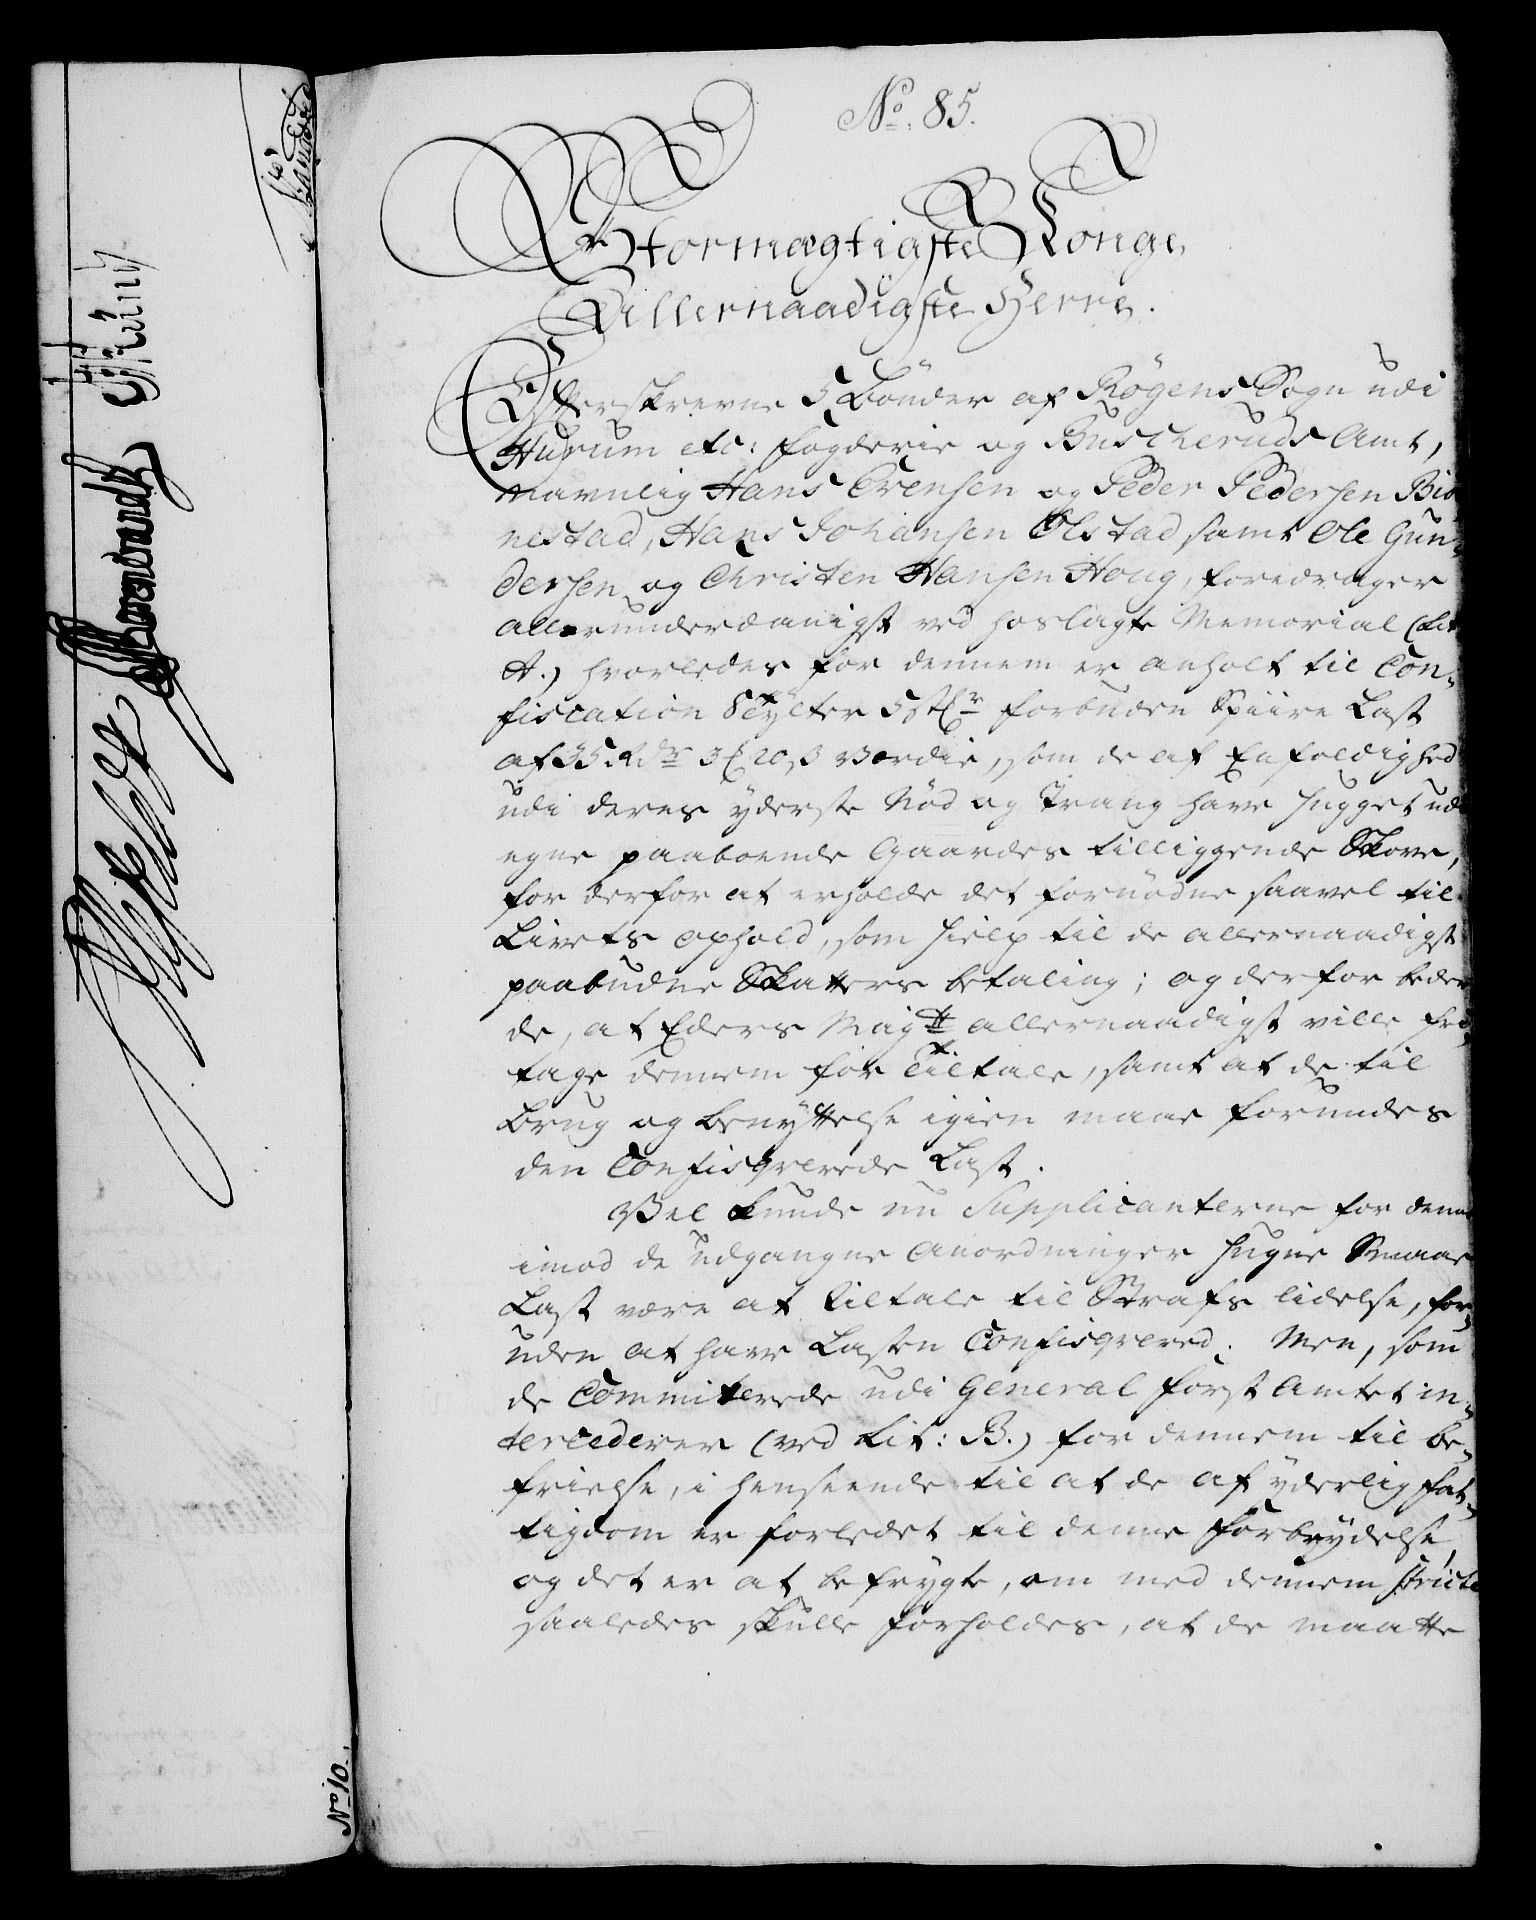 No. 85.
Stormægtigste Konge
Allernaadigste Herre.
Efterskrevne 5 Bönder af Rögens Sogn udi
Hurum etc: fogderie og Buscheruds Amt,
navnlig Hans Evensen og Peder Pedersen Biö
nestad, Hans Johansen Olstad samt Ole Gun-
dersen og Christen Hansen Houg, foredrager
allerunderdanigst ved hoslagte Memorial (Lit
A.) hvorledes for dennem er anholt til Con-
fiscation 8 tylter 5 st. forbuden Spiire Last
af 35 Rdr 3 20 s Værdie, som de af Enfoldighed
udi deres yderste Nöd og Trang have hugget udi
egne paaboende Gaardes tilliggende Skove,
for derfor at erholde det fornödne saavel til
Livets ophold, som hielp til de allernaadigst
paabudne Skatters betaling; og derfor beder
de, at Eders Maytt allernaadigst ville fri-
tage dennem for tiltale, samt at de til
brug og benyttelse igien maae forundes
den Confisqverede Last.
Vel kunde nu Supplicanterne for denne
imod de udgangne Anordninger hugne Smaae
Last være at tiltale til Strafs lidelse, for-
uden at have Lasten Confisqvered. Men, som
de Committerede udi General Forst Amtet in-
tercederer (ved Lit: B.) for dennem til be-
frielse, i henseende til at de af yderlig fat-
tigdom er forledet til denne Forbrydelse,
og det er at befrygte, om med dennem stricte
saaledes skulle forholdes, at de maatte
No 10.